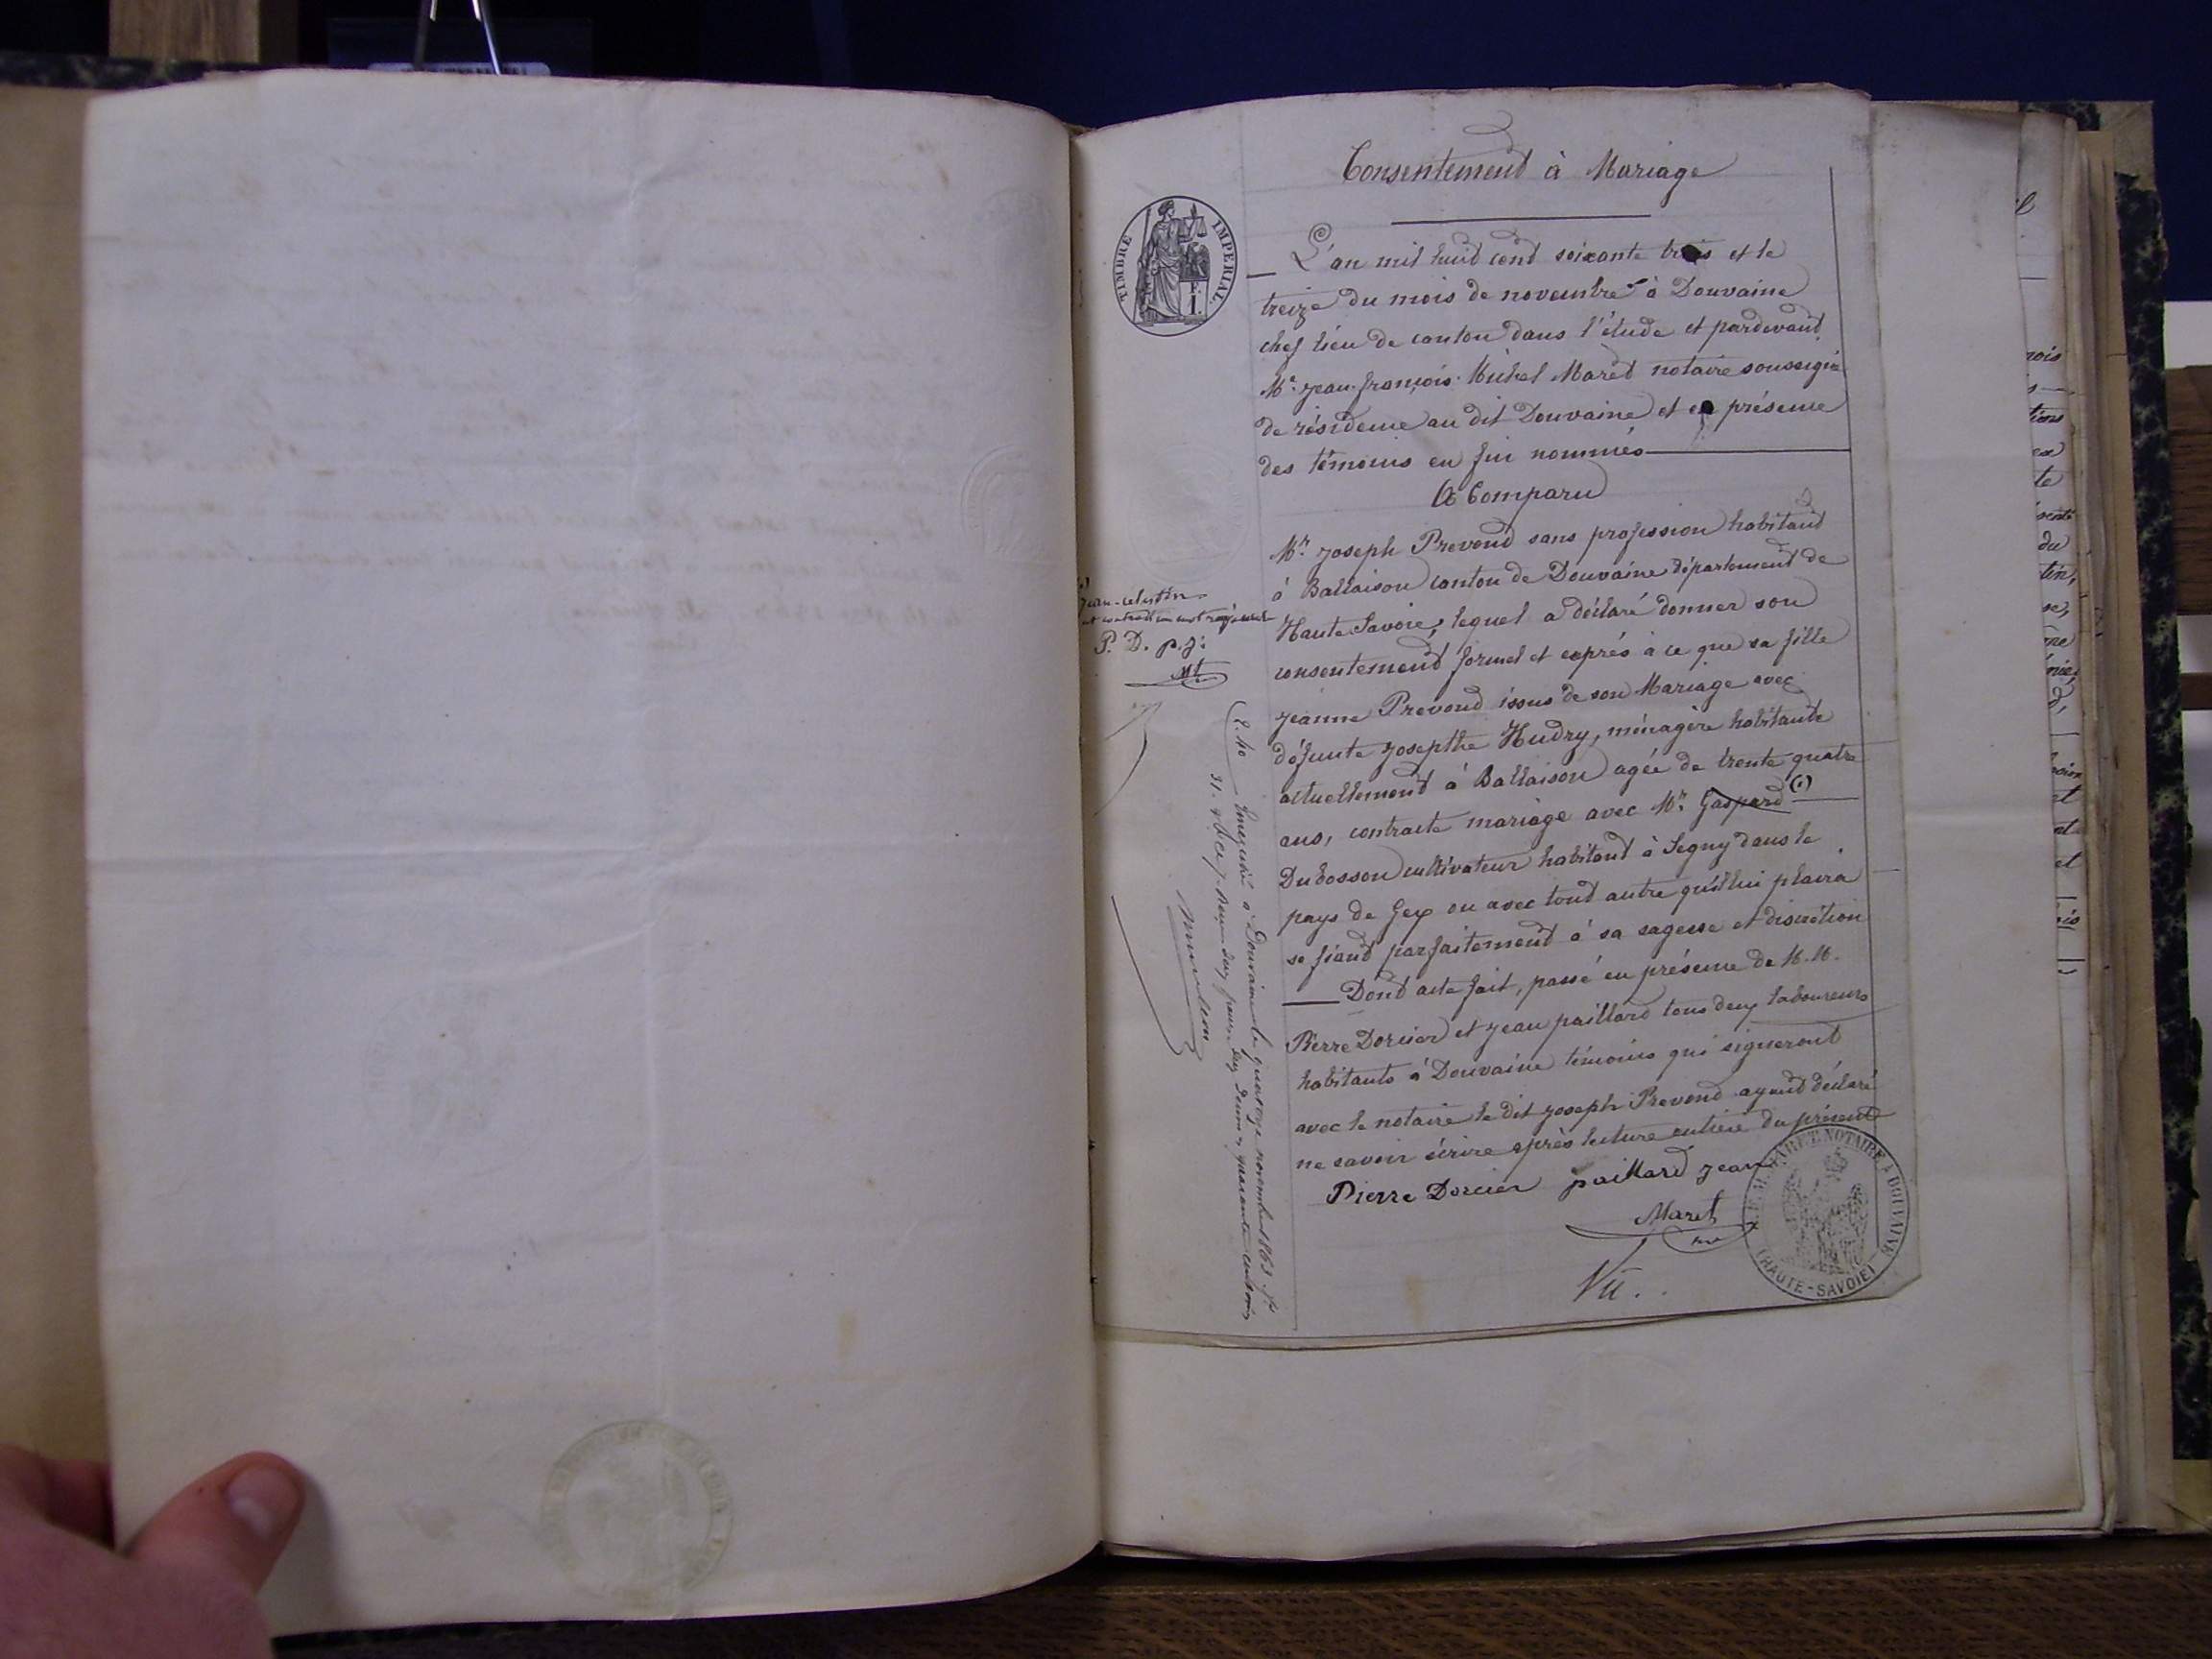 Consentement à Mariage
TIMBRE IMPERIAL.
L'an mil huit cent soixante trois et le
treize du mois de novembre à Douvaine
chef lieu de canton dans l'étude et pardevant
Me. Jean-françois-Michel Maret notaire soussigné
de résidence au dit Douvaine et en présence
des témoins en fin nommés
A Comparu
Mr. Joseph Prevond sans profession habitant
à Ballaison canton de Douvaine département de
Haute Savoie, lequel a déclaré donner son
consentement formel et exprés à ce que sa fille
Jeanne Prevond issus de son Mariage avec
défunte Josephte Hudry, ménagère habitante
actuellement à Ballaison agée de trente quatre
ans, contracte mariage avec Mr. Gaspard (1)
Dubosson cultivateur habitant à Segny dans le
pays de Gex ou avec tout autre qu'il lui plaira
se fiant parfaitement à sa sagesse et discrétion
Dont acte fait, passé en présence de M.M.
Pierre Dorcier et Jean paillard tous deux laboureurs
habitants à Douvaine témoins qui signeront
avec le notaire le dit Joseph Prevond ayant déclaré
ne savoir écrire après lecture entière du présent
Pierre Dorcier paillard Jean
Maret
Vu.
MARET NOTAIRE A DOUVAINE
(HAUTE-SAVOIE)
Jean-celestin
P. D. p. J:
Mt
2.40 Enregistré à Douvaine le quatorze novembre 1863. fo
31. Reçu deux francs deux décimes quarante centimes